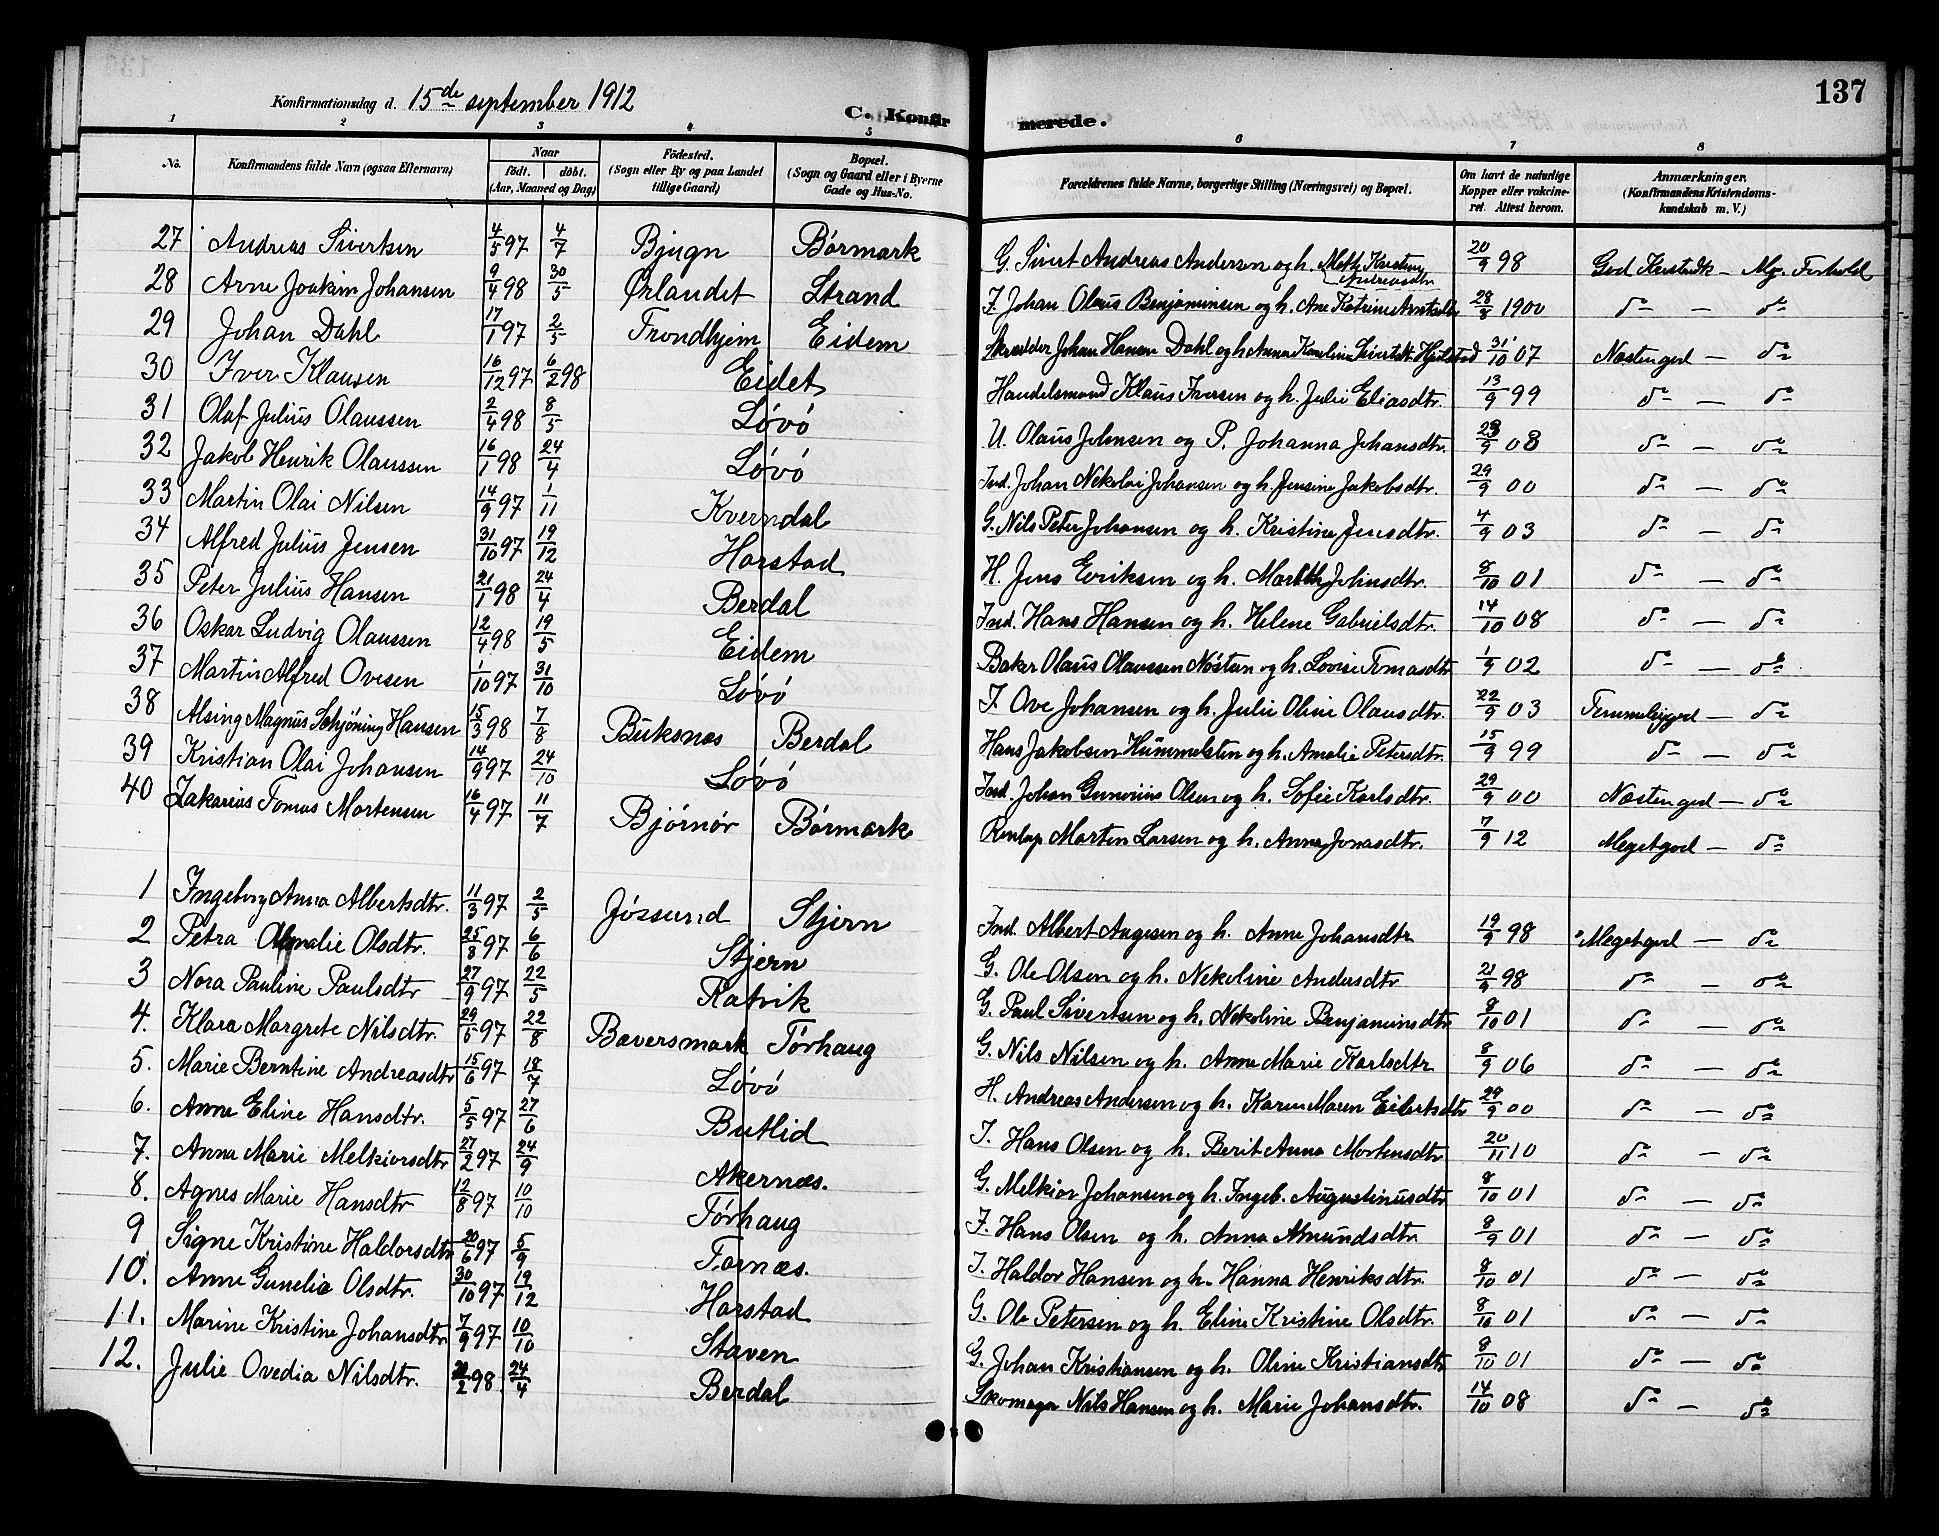 137
Konfirmationsdag d. 15de september 1912
C. Konfirmerede.
1 2 3 4 5 6 7 8
No. Konfirmandens fulde Navn (ogsaa Efternavn) Naar födt. döbt. (Aar, Maaned og Dag) Födested. (Sogn eller By og paa Landet tillige Gaard) Bopæl. (Sogn og Gaard eller i Byerne Gade og Hus-No. Forældrenes fulde Navne, borgerlige Stilling (Næringsvei) og Bopæl. Om havt de naturlige Kopper eller vakcineret. Attest herom. Anmærkninger. (Konfirmandens Kristendomskundskab m. V.)
27 Andreas Sivertsen 4/5 97 4/7 Bjugn Börmark G. Sivert Andreas Andersen og h. Meth. 20/9 98 God Kristdk - Mg. Forhold
28 Arne Joakim Johansen 9/4 98 30/5 Ørlandet Strand F. Johan Olaus Benjaminsen og h. Ane Katrine Arntsdtr 28/8 1900 do - do
29 Johan Dahl 17/1 97 2/5 Trondhjem Eidem Skrædder Johan Hansen Dahl og h Anna Karolina Sivertsdtr Hjulstad 31/10 07 Næstengod - do
30 Iver Klausen 16/12 97 6/2 98 Eidet Handelsmand Klaus Iversen og h. Julie Eliasdtr. 13/9 99 do - do
31 Olaf Julius Olaussen 2/4 98 8/5 Lövö U. Olaus Johnsen og P. Johanna Johansdtr. 23/9 08 do - do
32 Jakob Henrik Olaussen 16/1 98 24/4 Lövö Ind. Johan Nekolai Johansen og h. Jensine Jakobsdtr. 29/9 00 do - do
33 Martin Olai Nilsen 14/9 97 1/11 Kverndal G. Nils Peter Johansen og h. Kristine Jensdtr. 4/9 03 do - do
34 Alfred Julius Jensen 31/10 97 19/12 Harstad H. Jens Eriksen og h. Marith Johnsdtr. 8/10 01 do - do
35 Peter Julius Hansen 21/1 98 24/4 Berdal Ind. Hans Hansen og h. Helene Gabrielsdtr. 14/10 08 do - do
36 Oskar Ludvig Olaussen 12/4 98 19/5 Eidem Baker Olaus Olaussen Nöstan og h. Lovise Tomasdtr 1/9 02 do - do
37 Martin Alfred Ovesen 1/10 97 31/10 Lövö F. Ove Johansen og h. Julie Oline Olausdtr. 22/9 03 Temmeliggod - do
38 Alsing Magnus Schjöning Hansen 15/3 98 7/8 Buksnæs Berdal Hans Jakobsen Hummelsten og h. Amalie Petersdtr. 15/9 99 do - do
39 Kristian Olai Johansen 14/9 97 24/10 Lövö Ind. Johan Gunerius Olsen og h. Sofie Karlsdtr. 29/9 00 Næstengod - do
40 Zakarias Tomas Mortensen 16/4 97 11/7 Bjórnór Börmark Morten Larsen og h. Anna Jonasdtr. 7/9 12 Megetgod - do
1 Ingeborg Anna Albertsdtr. 11/3 97 2/5 Jössund Stjern Ind. Albert Angesen og h. Anne Johansdtr 19/9 98 Megetgod - do
2 Petra Amalie Olsdtr. 25/8 97 6/6 Stjern G. Ole Olsen og h. Nekoline Andersdtr 21/9 98 do - do
3 Nora Pauline Paulsdtr 27/9 97 22/5 Ratvik G. Paul Sivertsen og h. Nekoline Benjaminsdtr 8/10 01 do - do
4. Klara Margrete Nilsdtr. 29/5 97 22/8 Bæversmark Törhaug G. Nils Nilsen og h. Anne Marie Karlsdtr 8/9 06 do - do
5. Marie Berntine Andreasdtr 15/6 97 18/7 Lövö H. Andreas Andersen og h. Karen Maren Eilertsdtr 29/9 00 do - do
6. Anne Eline Hansdtr. 5/5 97 27/6 Butlid I. Hans Olsen og h. Berit Anna Mortensdtr 20/11 10 do - do
7. Anna Marie Melkiorsdtr 27/2 97 24/9 Akernæs. G. Melkior Johansen og h. Ingeb. Augustinusdtr 8/10 01 do - do
8. Agnes Marie Hansdtr 12/8 97 10/10 Törhaug F. Hans Olsen og h. Anna Amundsdtr 8/9 01 do - do
9 Signe Kristine Haldorsdtr 20/6 97 5/9 Tarnæs. I. Haldor Hansen og h. Hanna Henriksdtr. 8/10 01 do - do
10. Anne Gunelia Olsdtr. 30/10 97 19/12 Harstad G. Ole Petersen og h. Eline Kristine Olsdtr. 8/10 01 do - do
11. Marine Kristine Johansdtr 7/9 97 10/10 Staven G. Johan Kristiansen og h. Oline Kristiansdtr 8/10 01 do - do
12. Julie Ovedia Nilsdtr. 2/2 98 24/4 Berdal Skomager Nils Hansen og h. Marie Johansdtr. 14/10 08 do - do